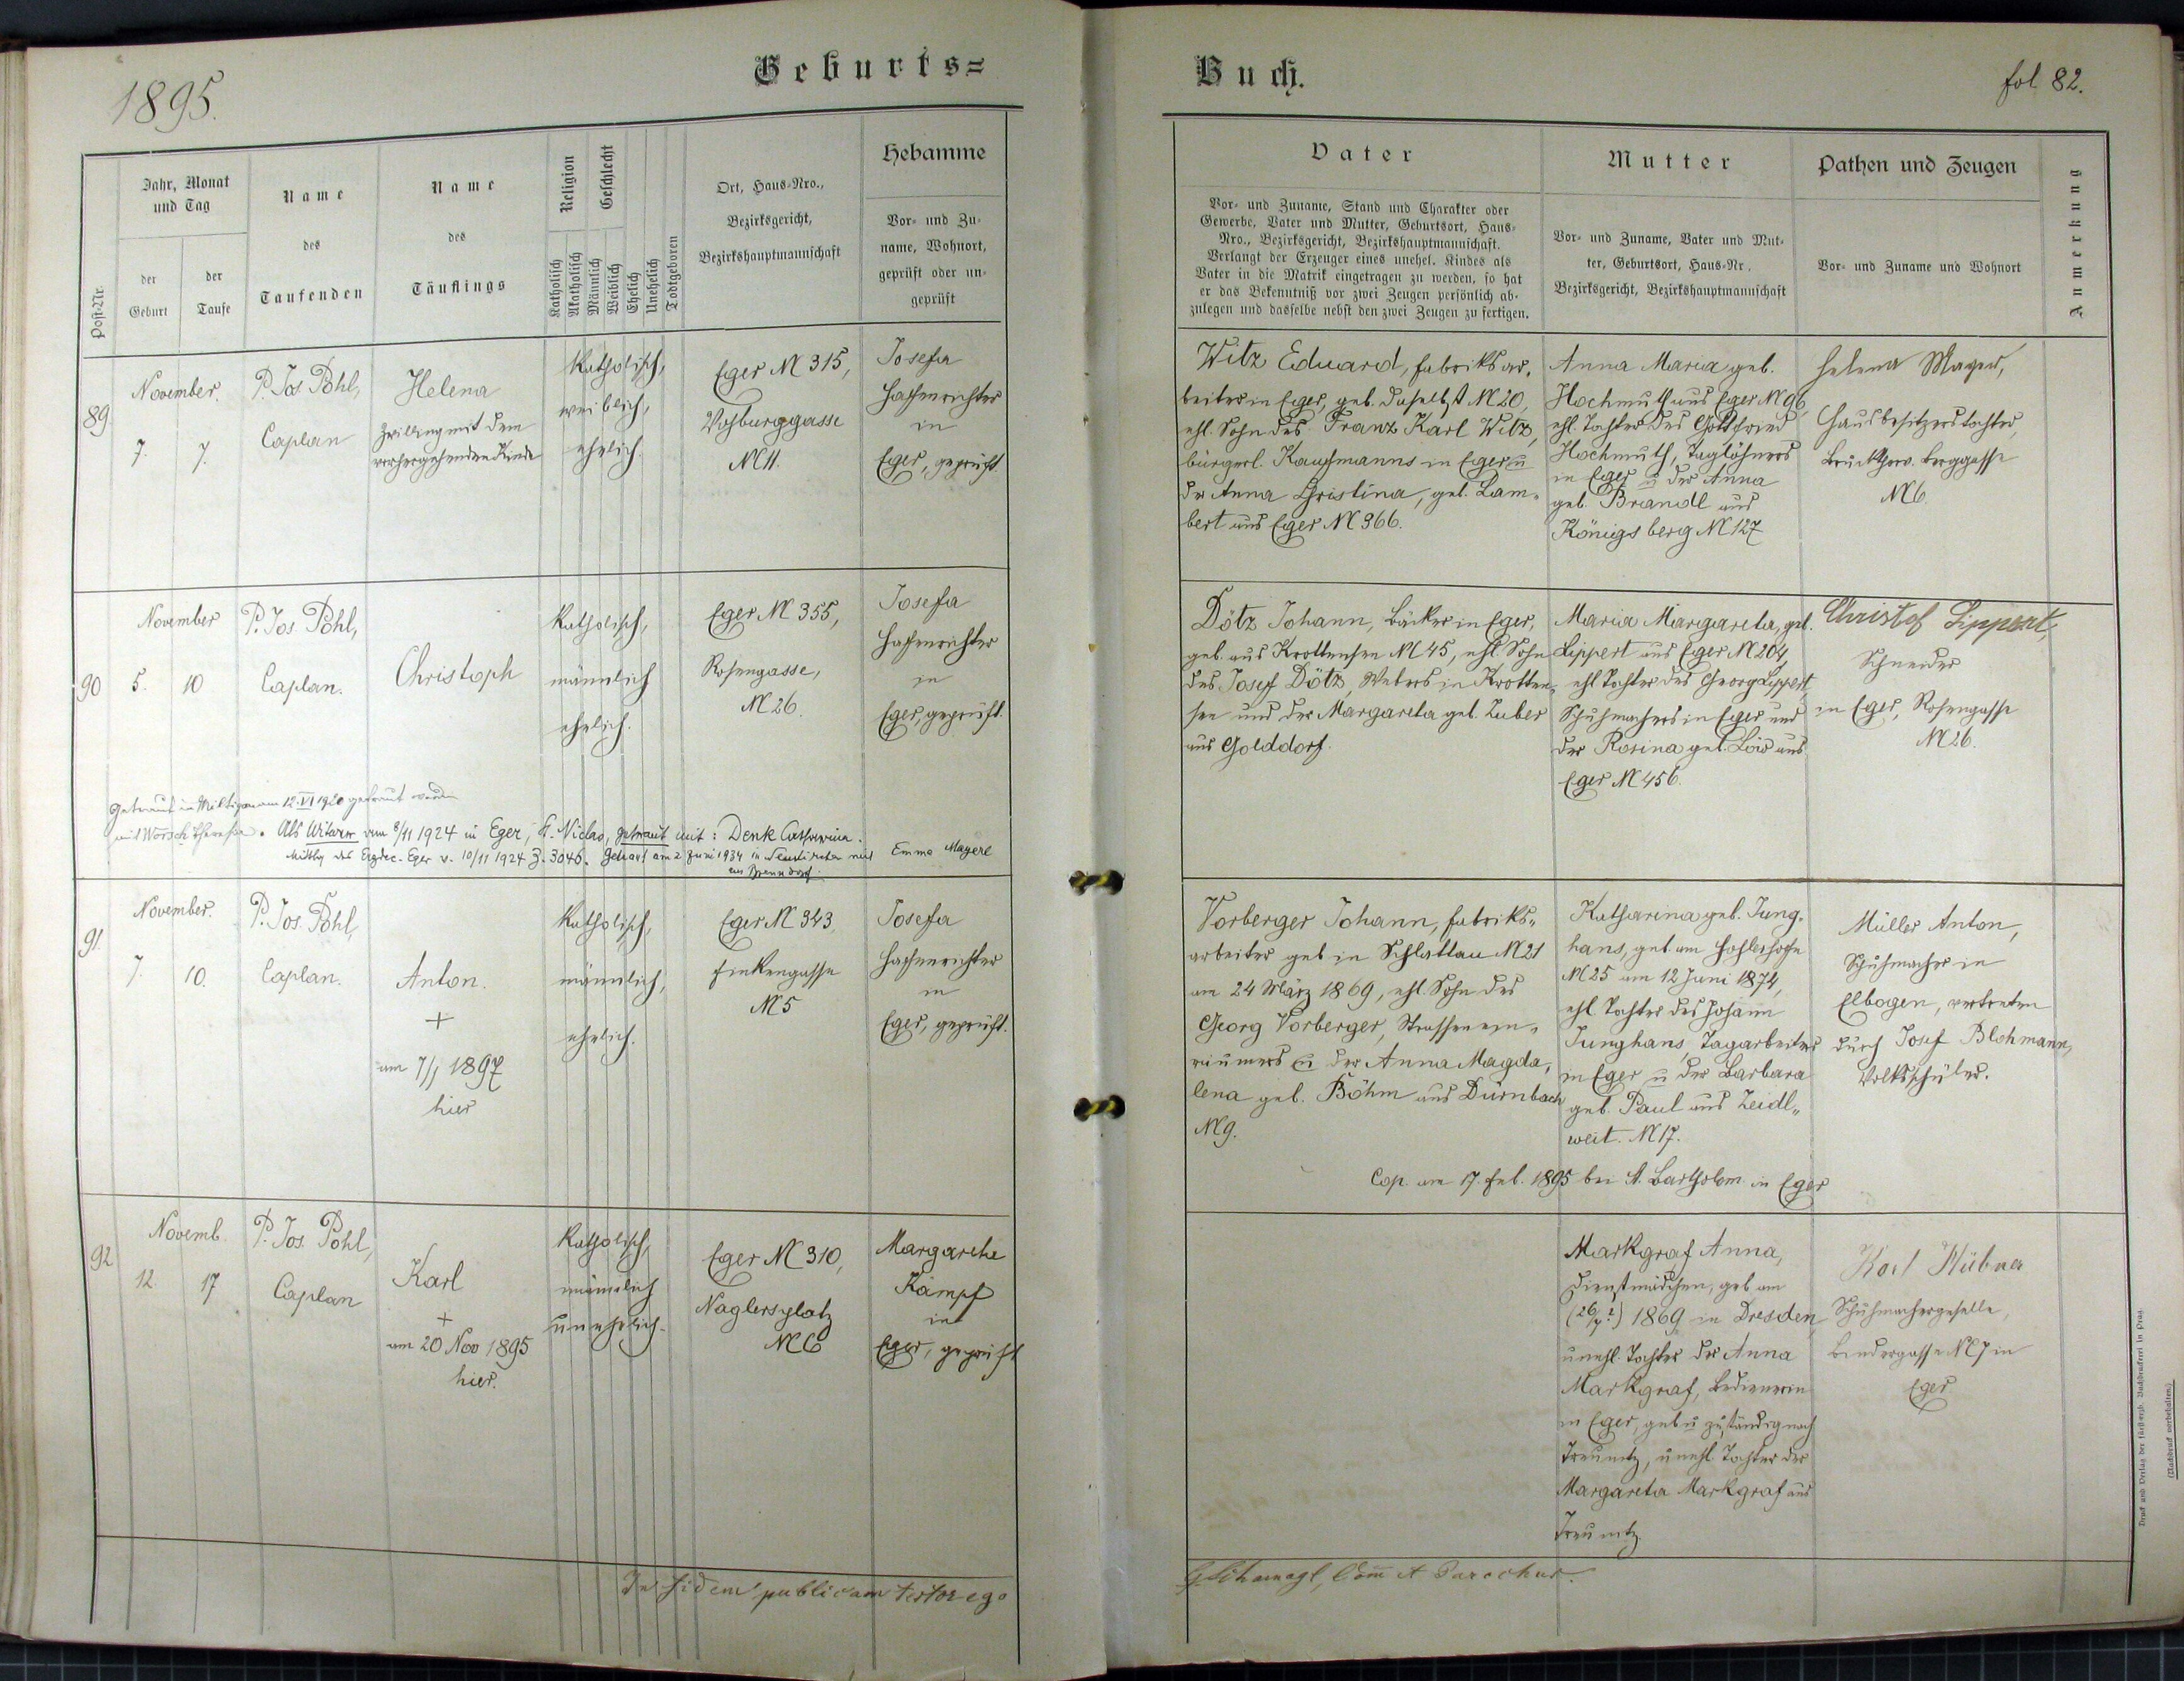 1895.
Geburts=
Jahr, Monat
und Tag
Name
des
Taufenden
Name
des
Täuflings
Religion
Geschlecht
Ort, Haus-Nro.,
Bezirksgericht,
Bezirkshauptmannschaft
Hebamme
Vor- und Zu-
name, Wohnort,
geprüft oder un-
geprüft
Post-Nr.
der
Geburt
der
Taufe
Katholisch
Akatholisch
Männlich
Weiblich
Ehelich
Unehelich
Todtgeboren
89.
November.
7.
7.
P. Jos. Pohl,
Caplan
Helena
Zwilling mit dem
vorhergehenden Kinde
Katholisch,
weiblich,
ehelich.
Eger N 315,
Vohburggasse
N 11.
Josefa
Hassenrichter
in
Eger, geprüft.
90
November
5.
10
P. Jos. Pohl,
Caplan.
Christoph
Katholisch,
männlich
ehelich.
Eger N 355,
Rosengasse,
N 26.
Josefa
Hassenrichter
in
Eger, geprüft.
am 12. VI 1920 getraut worden
mit Theresia. Als Witwer am 8/11 1924 in Eger, St. Niclas, getraut mit: Denk Catharina.
Mitthg des Erzdec. Eger v. 10/11 1924 Z. 3046. Getraut am 2 Juni 1934 in mit Emma Mayerl
aus
91.
November.
7.
10.
P. Jos. Pohl,
Caplan.
Anton.
+
am 7/1 1897
hier
Katholisch,
männlich,
ehelich.
Eger N 343,
Finkengasse
N 5
Josefa
Hassenrichter
in
Eger, geprüft.
92
Novemb.
12.
17
P. Jos. Pohl,
Caplan
Karl
+
am 20 Nov 1895
hier.
Katholisch,
männlich
unehelich.
Eger N 310,
Naglersplatz
N 6
Margarethe
Kämpf
in
Eger, geprüft
In fidem publicam testor ego
Buch.
fol 82.
Vater
Vor- und Zuname, Stand und Charakter oder
Gewerbe, Vater und Mutter, Geburtsort, Haus-
Nro., Bezirksgericht, Bezirkshauptmannschaft.
Verlangt der Erzeuger eines unehel. Kindes als
Vater in die Matrik eingetragen zu werden, so hat
er das Bekenntniß vor zwei Zeugen persönlich ab-
zulegen und dasselbe nebst den zwei Zeugen zu fertigen.
Mutter
Vor- und Zuname, Vater und Mut-
ter, Geburtsort, Haus-Nr.
Bezirksgericht, Bezirkshauptmannschaft
Pathen und Zeugen
Vor- und Zuname und Wohnort
Anmerkung
Witz Eduard, Fabriksar-
beiter in Eger, geb. daselbst N 20,
ehl. Sohn des Franz Karl Witz,
bürgerl. Kaufmanns in Eger u
der Anna Christina, geb. Lam-
bert aus Eger N 366.
Anna Maria geb.
Hochmuth aus Eger N 96,
ehl. Tochter des Gottfried
Hochmuth, Taglöhners
in Eger u der Anna
geb. Brandl aus
Königsberg N 127
Helena Mayer,
Hausbesitzerstochter,
Bruckthorv. Berggasse
N 6.
Dötz Johann, Bäcker in Eger,
geb. aus Krottensee N 45, ehl Sohn
des Josef Dötz, Webers in Krotten-
see und der Margareta geb. Zuber
aus Golddorf.
Maria Margareta, geb.
Lippert aus Eger N 204,
ehl Tochter des Georg Lippert,
Schuhmachers in Eger und
der Rosina geb. Lois aus
Eger N 456.
Christof Lippert,
Schneider
in Eger, Rosengasse
N 26.
Vorberger Johann, Fabriks-
arbeiter geb in Schlattau N 21
am 24 März 1869, ehl. Sohn des
Georg Vorberger, Strassenein-
räumers u der Anna Magda-
lena geb. Böhm aus Dürnbach
N 9.
Katharina geb. Jung-
hans, geb am Hohlerhofe
N 25 am 12 Juni 1874,
ehl. Tochter des Johann
Junghans, Tagarbeiter
in Eger u der Barbara
geb. Paul aus Zeidl-
weit. N 17.
Müller Anton,
Schuhmacher in
Elbogen, vertreten
durch Josef Blohmann,
Volksschüler.
Cop. am 17. Feb. 1895 bei St. Bartholom. in Eger
Markgraf Anna,
Dienstmädchen, geb am
(26/7?) 1869 in Dresden,
unehl. Tochter der Anna
Markgraf, Bedienerin
in Eger, geb u zuständig nach
Treunitz, unehl. Tochter der
Margareta Markgraf aus
Treunitz.
Karl Hübner
Schuhmachergeselle,
Bindergasse N 7 in
Eger
Com et Parochus.
Druck und Verlag der fürsterzb. Buchdruckerei in Prag.
(Nachdruck vorbehalten.)